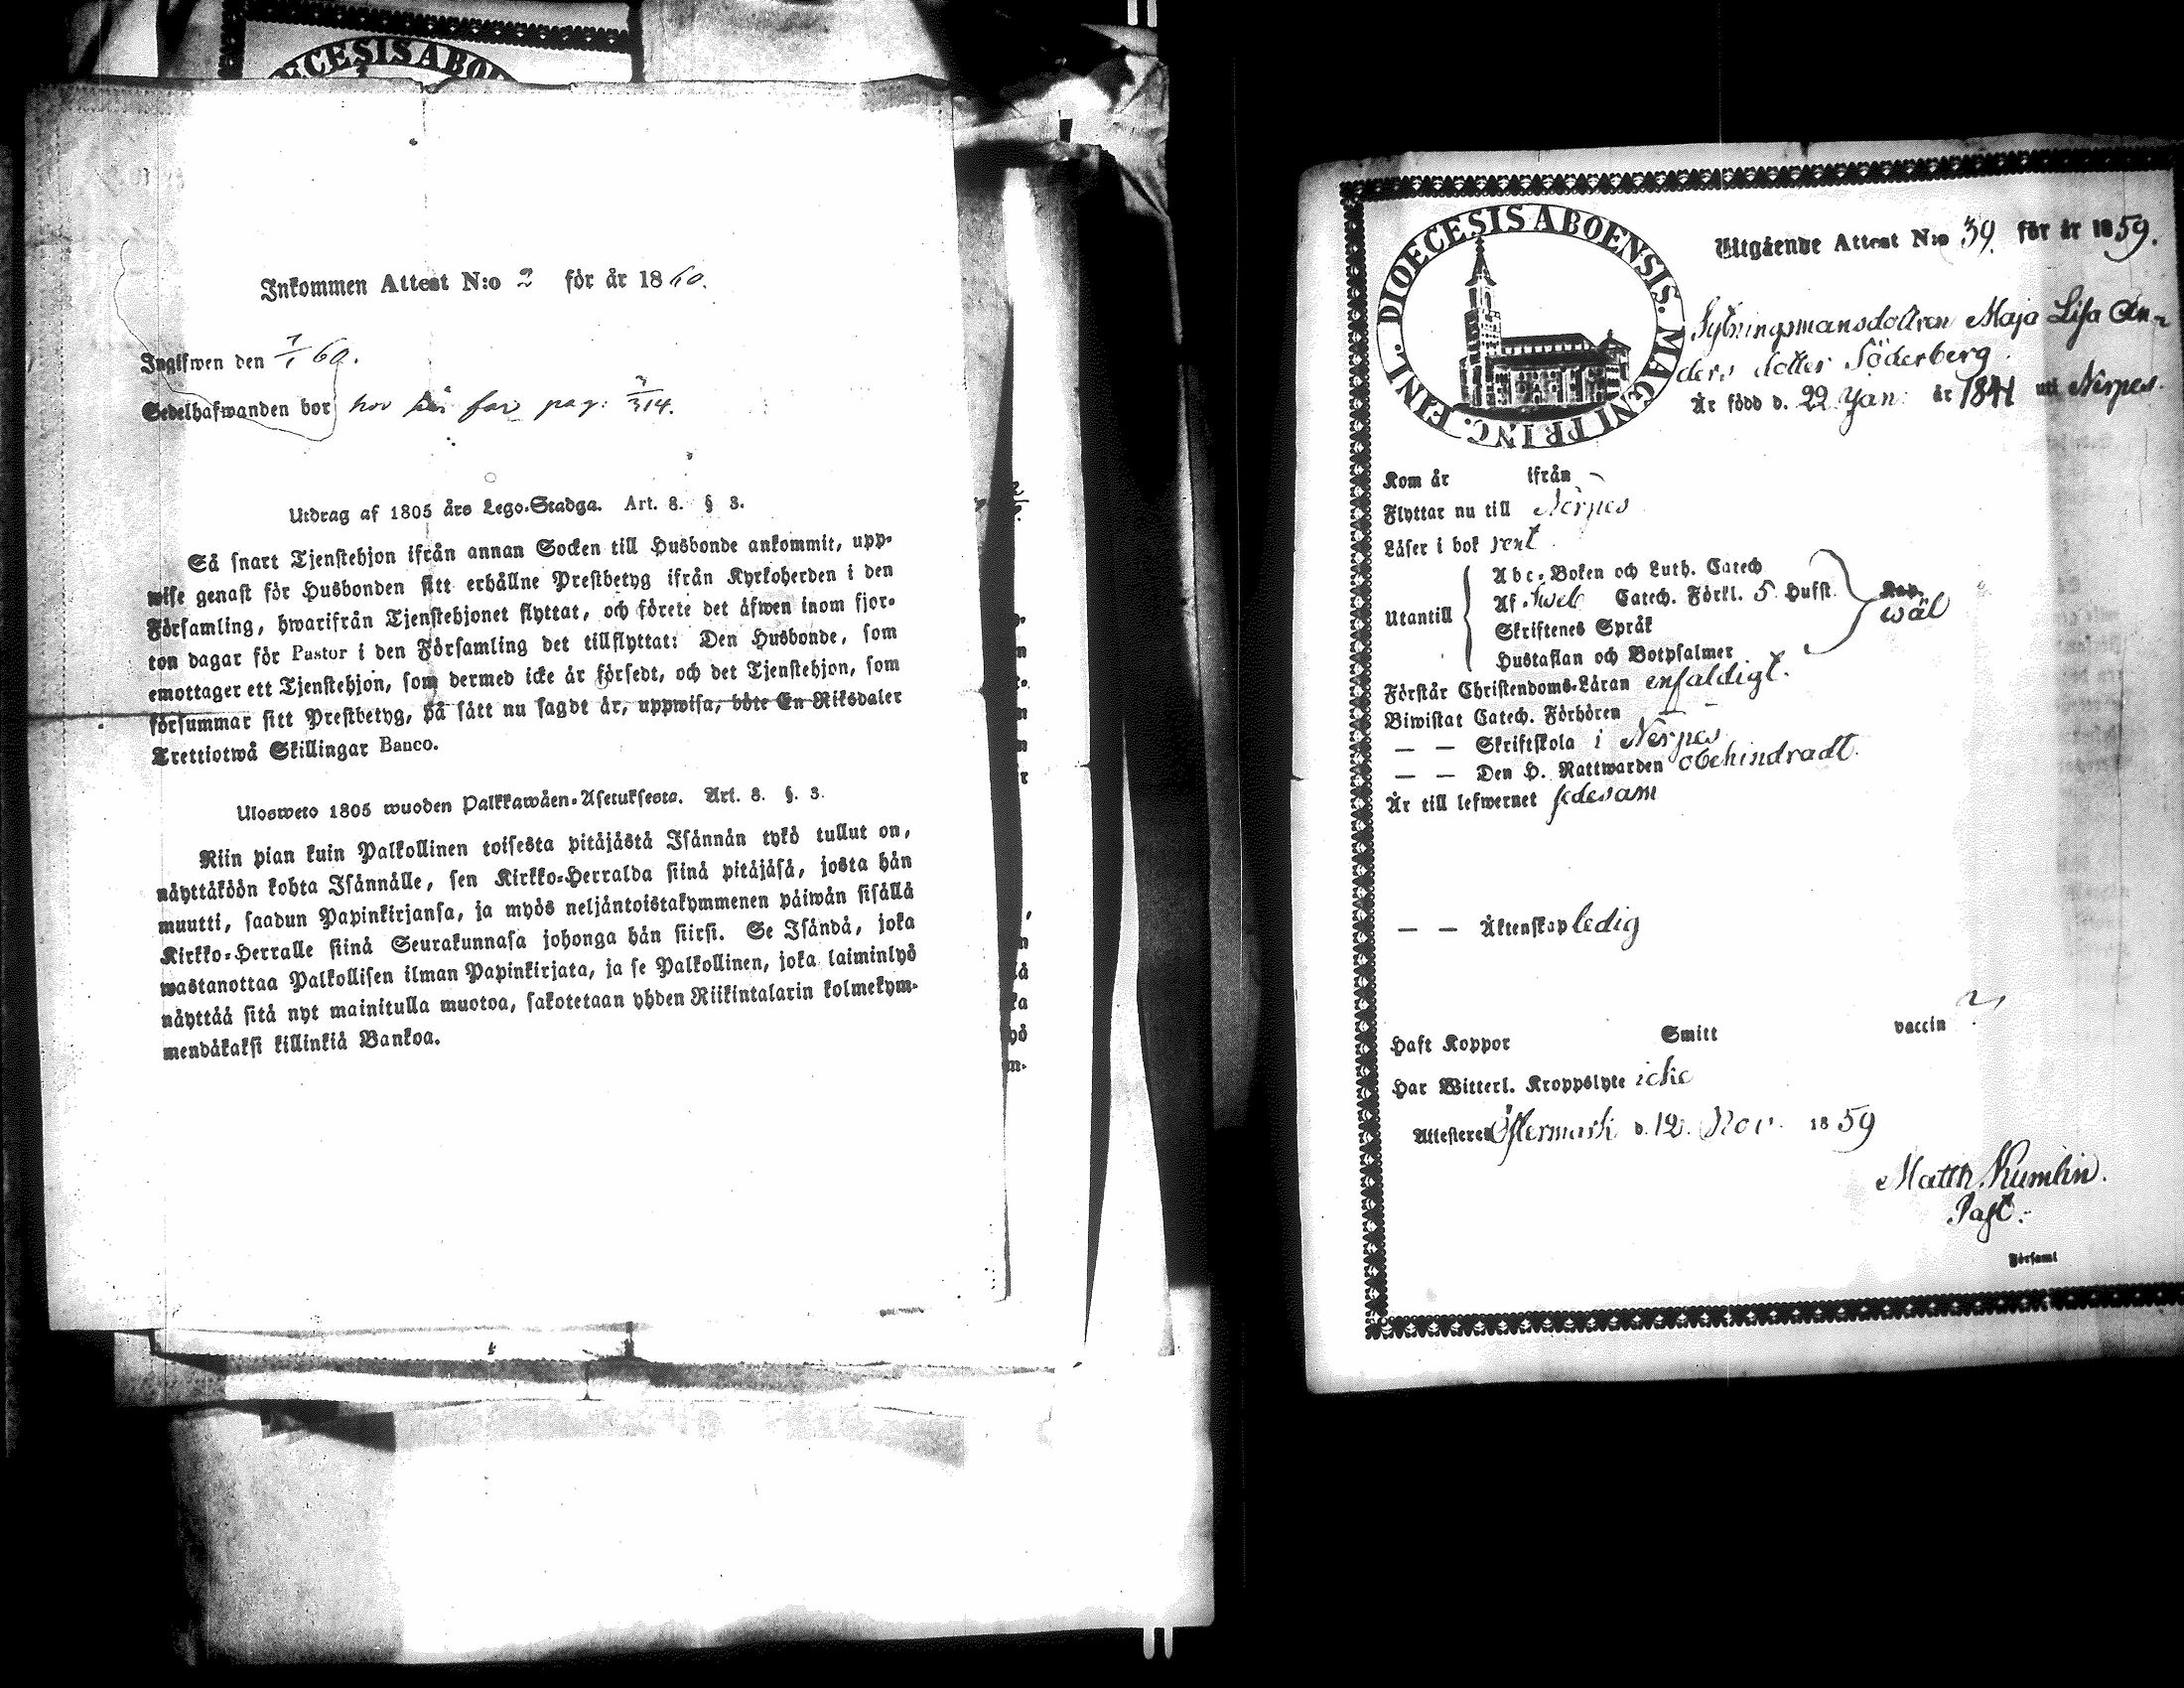 ECESIS ABO
Inkommen Attest N:o 2 för år 1860.
Ingifwen den 7/1 60.
Sedelhafwanden bor hos sin far pag: 314.
Utdrag af 1805 års Lego-Stadga. Art. 8. § 3.
Så snart Tjenstehjon ifrån annan Socken till Husbonde ankommit, upp-
wise genast för Husbonden sitt erhållne Prestbetyg ifrån Kyrkoherden i den
Församling, hwarifrån Tjenstehjonet flyttat, och förete det äfwen inom fjor-
ton dagar för Pastor i den Församling det tillflyttat: Den Husbonde, som
emottager ett Tjenstehjon, som dermed icke är försedt, och det Tjenstehjon, som
försummar sitt Prestbetyg, på sätt nu sagdt är, uppwisa, böte En Riksdaler
Trettiotwå Skillingar Banco.
Ulosweto 1805 wuoden Palkkawäen-Asetuksesta. Art. 8. §. 3.
Niin pian kuin Palkollinen toisesta pitäjästä Isännän tykö tullut on,
näyttäköön kohta Isännälle, sen Kirkko-Herralda siinä pitäjäsä, josta hän
muutti, saadun Papinkirjansa, ja myös neljäntoistakymmenen päiwän sisällä
Kirkko-Herralle siinä Seurakunnasa johonga hän siirsi. Se Isändä, joka
wastanottaa Palkollisen ilman Papinkirjata, ja se Palkollinen, joka laiminlyö
näyttää sitä nyt mainitulla muotoa, sakotetaan yhden Riikintalarin kolmekym-
mendäkaksi killinkiä Bankoa.
DIOECESIS ABOENSIS. MAGNI PRINC. FINL.
Utgående Attest N:o 39. för år 1859.
Sytningsmansdottren Maja Lisa An-
ders dotter Söderberg.
Är född d. 22 Jan: år 1841 uti Nerpes.
Kom år ifrån –
Flyttar nu till Nerpes
Läser i bok rent
Utantill
Abc-Boken och Luth. Catech
Af Sweb Catech. Förkl. 5 Hufst.
Skriftenes Språk
Hustaflan och Botpsalmer
wäl
Förstår Christendoms-Läran enfaldigt.
Biwistat Catech. Förhören –
— — Skriftskola i Nerpes
— — Den H. Nattwarden obehindradt.
Är till lefwernet sedesam
— — Äktenskap ledig
Haft Koppor Smitt vaccin
Har Witterl. Kroppslyte icke
Attesteres Östermark d. 12. Nov. 1859
Matth. Kumlin.
Past.
Församl